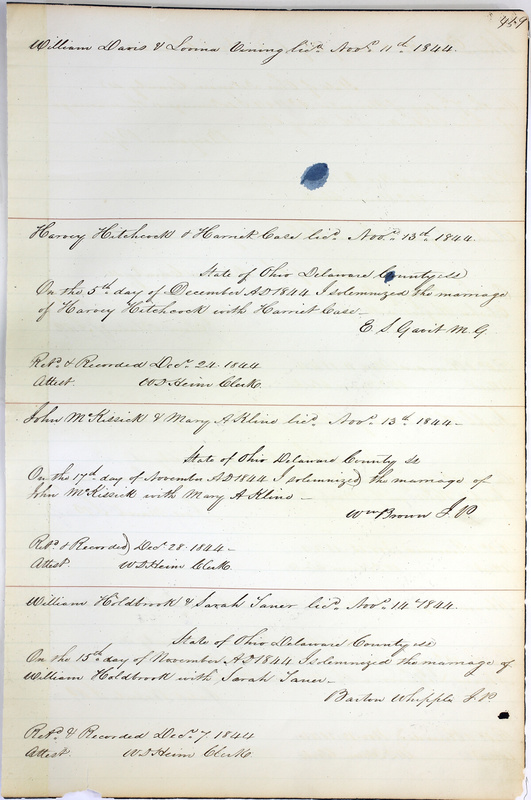 459
William Davis & Lovina Vining licd. Novr. 11th. 1844.
Harvey Hitchcock & Harriet Case licd. Novr. 13th. 1844.
State of Ohio Delaware County ss
On the 5th day of December AD 1844 I solemnized the marriage
of Harvey Hitchcock with Harriet Case
E S Gavit M. G
Retd. & Recorded Decr. 24. 1844
Attest. W D Heim Clerk
John McKissick & Mary A Kline licd. Novr. 13th. 1844
State of Ohio Delaware County ss
On the 17th day of November AD 1844 I solemnized the marriage of
John McKissick with Mary A Kline
Wm Brown J. P.
Retd. & Recorded Decr. 28. 1844
Attest W D Heim Clerk
William Holdbrook & Sarah licd. Novr. 14. 1844.
State of Ohio Delaware County ss
On the 15th day of November AD 1844 I solemnized the marriage of
William Holdbrook with Sarah
Barton Whipple J. P
Retd. & Recorded Decr. 7. 1844
Attest W D Heim Clerk